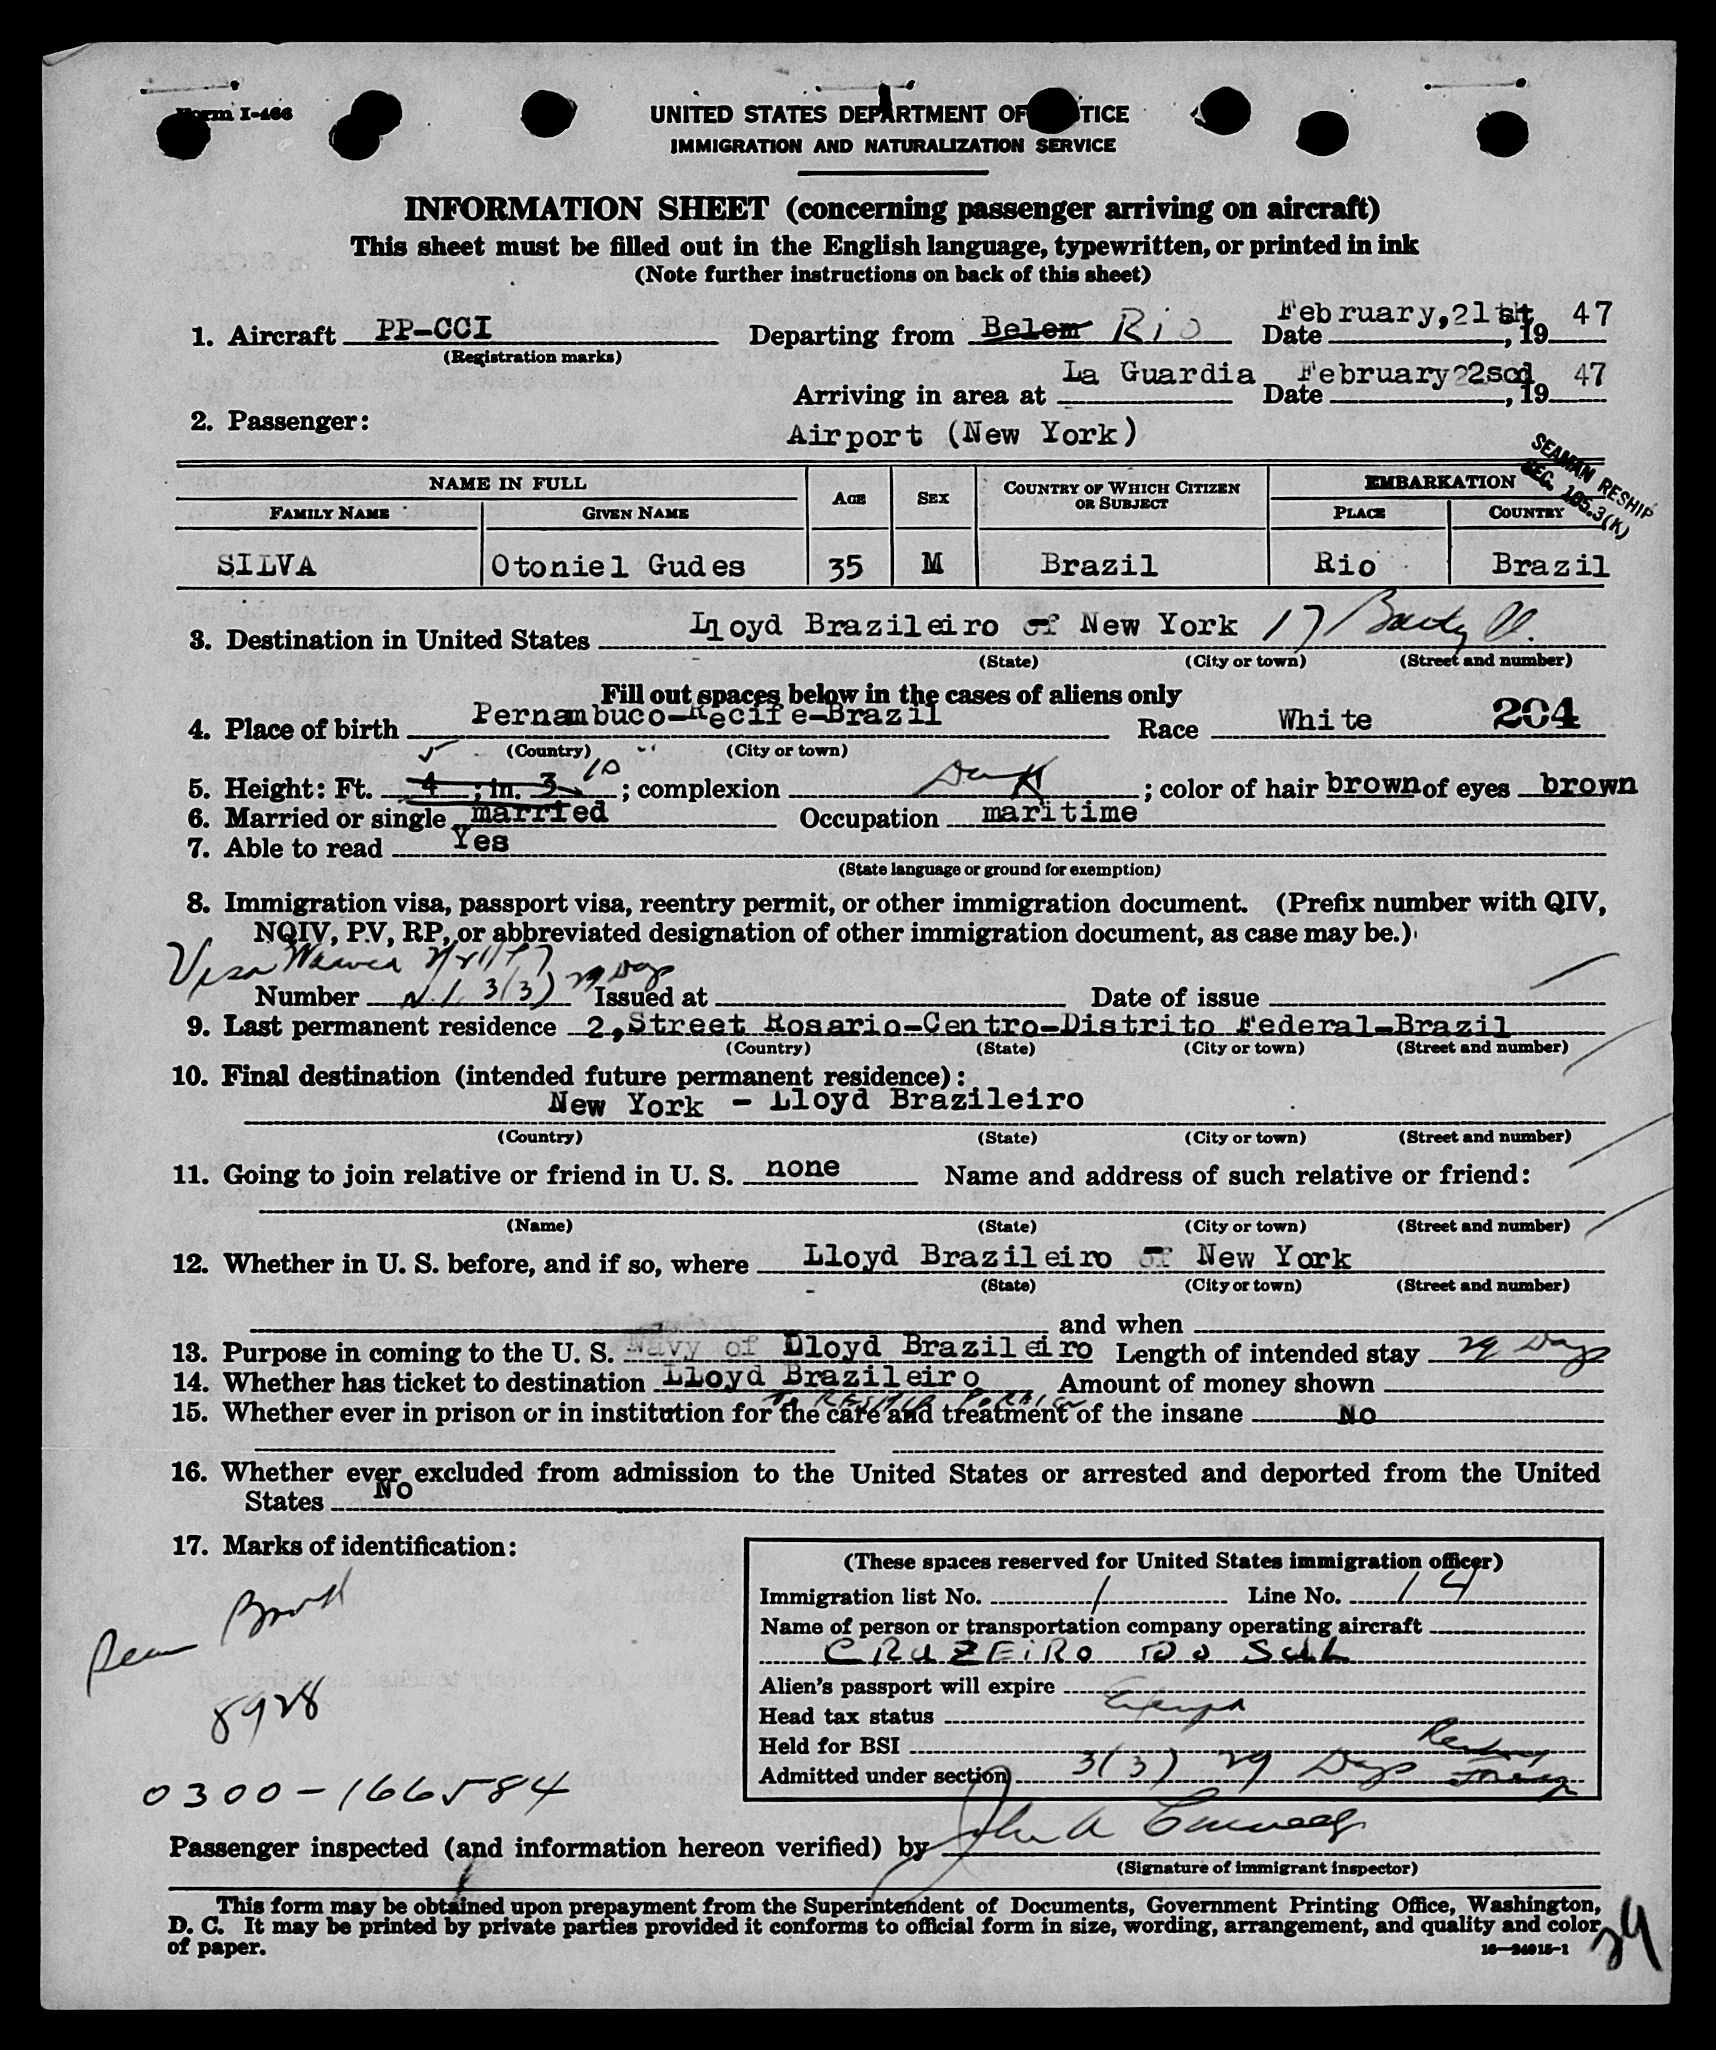 Form I-466
UNITED STATES DEPARTMENT OF JUSTICE
IMMIGRATION AND NATURALIZATION SERVICE
INFORMATION SHEET (concerning passenger arriving on aircraft)
This sheet must be filled out in the English language, typewritten, or printed in ink
(Note further instructions on back of this sheet)
1. Aircraft PP-CCI Departing from Belem Rio Date February, 21st, 19 47
(Registration marks)
Arriving in area at La Guardia Date February 22 , 19 47
2. Passenger: Airport (New York)
SEAMAN RESHIP
SEC. 105.3(K)
NAME IN FULL EMBARKATION
FAMILY NAME GIVEN NAME AGE SEX COUNTRY OF WHICH CITIZEN OR SUBJECT PLACE COUNTRY
SILVA Otoniel Gudes 35 M Brazil Rio Brazil
3. Destination in United States Lloyd Brazileiro of New York 17
(State) (City or town) (Street and number)
Fill out spaces below in the cases of aliens only
4. Place of birth Pernambuco-Recife-Brazil Race White 204
(Country) (City or town)
5. Height: Ft. 4 5 ; in. 3 10 ; complexion Dark ; color of hair brown of eyes brown
6. Married or single married Occupation maritime
7. Able to read Yes
(State language or ground for exemption)
8. Immigration visa, passport visa, reentry permit, or other immigration document. (Prefix number with QIV,
NQIV, PV, RP, or abbreviated designation of other immigration document, as case may be.)
Visa
Number 3(3) 29 Days Issued at Date of issue
9. Last permanent residence 2, Street Rosario-Centro-Distrito Federal-Brazil
(Country) (State) (City or town) (Street and number)
10. Final destination (intended future permanent residence):
New York - Lloyd Brazileiro
(Country) (State) (City or town) (Street and number)
11. Going to join relative or friend in U. S. none Name and address of such relative or friend:
(Name) (State) (City or town) (Street and number)
12. Whether in U. S. before, and if so, where Lloyd Brazileiro of New York
(State) (City or town) (Street and number)
and when
13. Purpose in coming to the U. S. Navy of Lloyd Brazileiro Length of intended stay 29 Days
14. Whether has ticket to destination Lloyd Brazileiro Amount of money shown
To RESHIP FOREIGN
15. Whether ever in prison or in institution for the care and treatment of the insane No
16. Whether ever excluded from admission to the United States or arrested and deported from the United
States No
17. Marks of identification:
(These spaces reserved for United States immigration officer)
Immigration list No. 1 Line No. 14
Name of person or transportation company operating aircraft
CRUZEIRO DO SUL
Alien's passport will expire
Head tax status
Held for BSI
Admitted under section 3(3) 29 Days
8928
0300-166584
Passenger inspected (and information hereon verified) by John A
(Signature of immigrant inspector)
This form may be obtained upon prepayment from the Superintendent of Documents, Government Printing Office, Washington,
D. C. It may be printed by private parties provided it conforms to official form in size, wording, arrangement, and quality and color
of paper.
16—24015-1
29